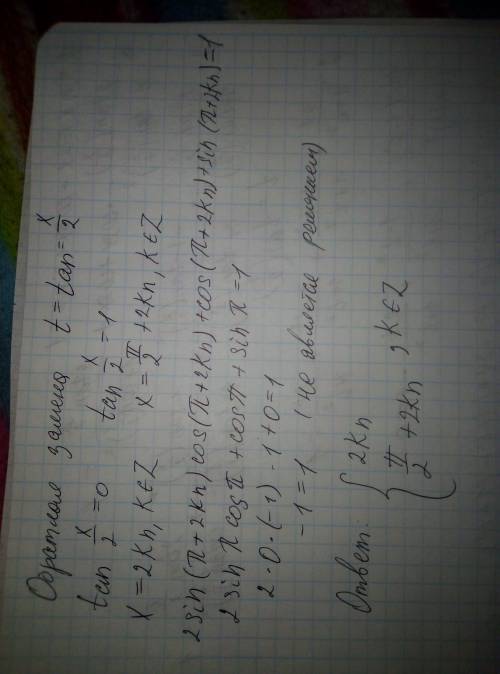 Обратная замена t = tan = x/2
tan x/2 = 0 tan x/2 = 1
x = 2kπ, k∈Z x = π/2 + 2kπ, k∈Z
2sin(π+2kπ)cos(π+2kπ)+cos(π+2kπ)+sin(π+2kπ)=1
2sinπ cosπ+cosπ+sinπ=1
2·0·(-1)-1+0=1
-1=1 (не является решением)
Ответ: { 2kπ
π/2 + 2kπ , k∈Z